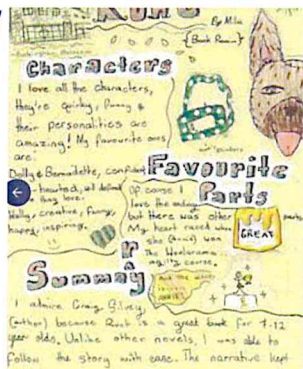 By Mila
{Book Review}
Characters
I love all the characters,
they're quirky, funny &
their personalities are
amazing! My favourite ones
are:
Dolly & Bernadette, confident
hearted, will defend
they love.
Wally, creative, funny,
happy, inspiring.
Favourite
Parts
Of course I
love the ending
but there was other parts.
My heart raced when
she (Annie) won
The Woolarama
agility course.
GREAT
Summary
And the winner
is
I admire Craig Silvey
(author) because Runt is a great book for 7-12
year olds. Unlike other novels, I was able to
follow the story with ease. The narrative kept